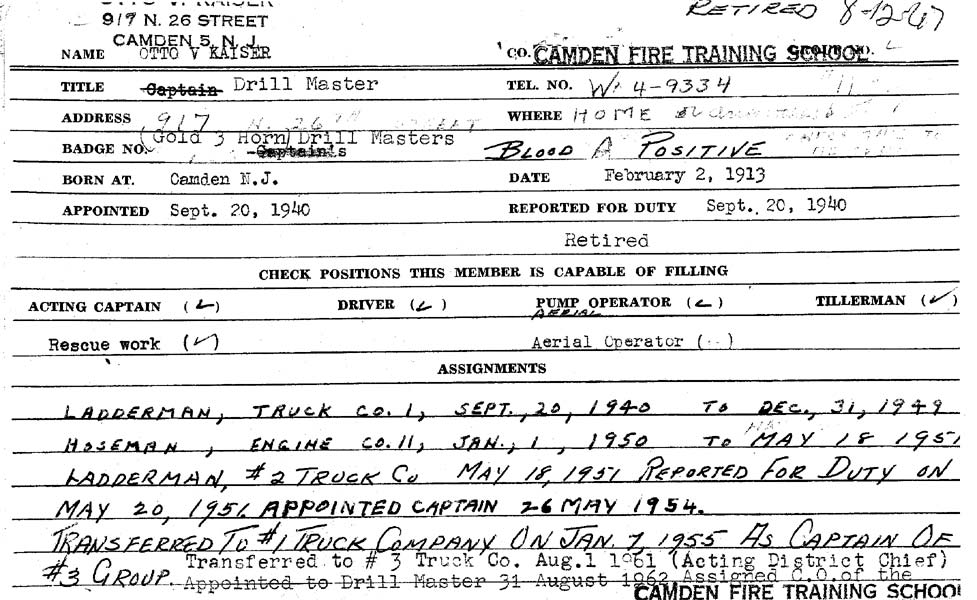 OTTO V. KAISER
917 N. 26 STREET
CAMDEN 5, N. J.
RETIRED 8-12-67
NAME OTTO V KAISER CO. CAMDEN FIRE TRAINING SCHOOL
TITLE Captain Drill Master TEL. NO. 4-9334
ADDRESS 917 N. 26TH STREET WHERE HOME
BADGE NO. (Gold 3 Horn) Drill Masters Captain's BLOOD A POSITIVE
BORN AT. Camden N.J. DATE February 2, 1913
APPOINTED Sept. 20, 1940 REPORTED FOR DUTY Sept. 20, 1940
Retired
CHECK POSITIONS THIS MEMBER IS CAPABLE OF FILLING
ACTING CAPTAIN (✓) DRIVER (✓) PUMP OPERATOR (✓) TILLERMAN (✓)
AERIAL
Rescue work (✓) Aerial Operator ( )
ASSIGNMENTS
LADDERMAN, TRUCK CO. 1, SEPT., 20, 1940 TO DEC., 31, 1949
HOSEMAN, ENGINE CO. 11, JAN., 1, 1950 TO MAY 18 1951
LADDERMAN, #2 TRUCK CO MAY 18, 1951 REPORTED FOR DUTY ON
MAY 20, 1951 APPOINTED CAPTAIN 26 MAY 1954.
TRANSFERRED TO #1 TRUCK COMPANY ON JAN. 7, 1955 AS CAPTAIN OF
#3 GROUP. Transferred to # 3 Truck Co. Aug.1 1961 (Acting District Chief)
Appointed to Drill Master 31 August 1962 Assigned C.O. of the
CAMDEN FIRE TRAINING SCHOOL